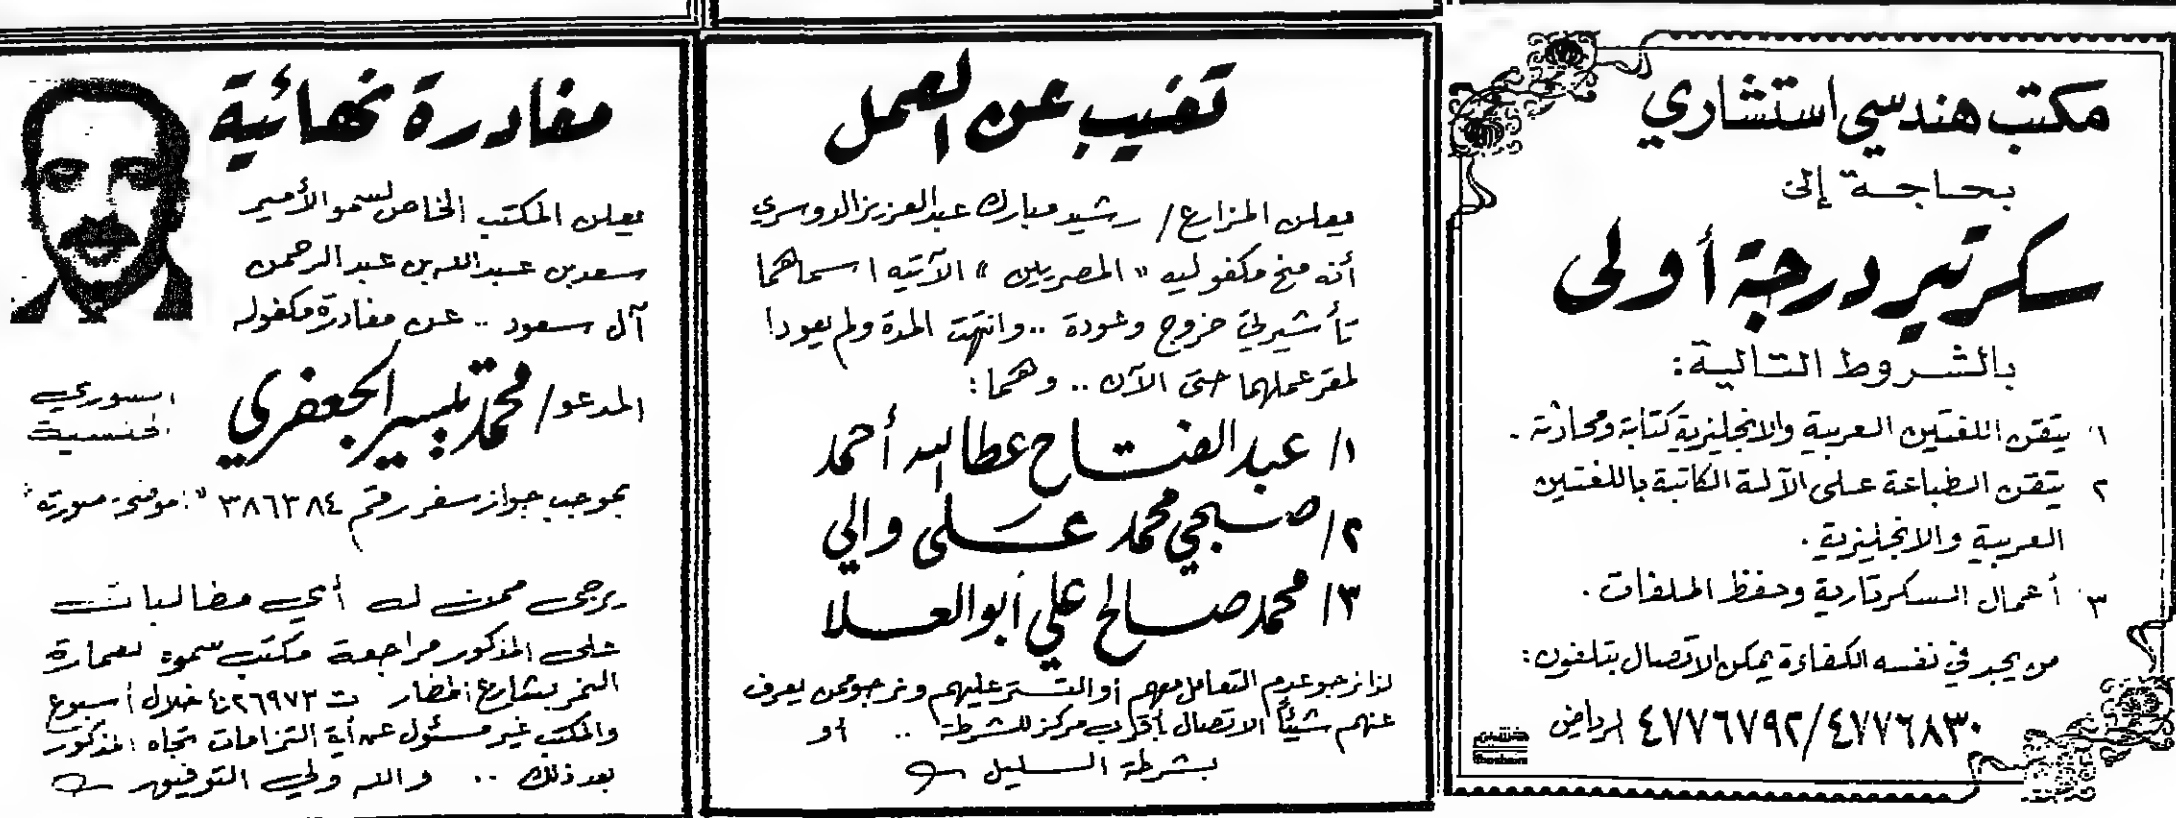 مكتب هندسي استشاري
بحاجة إلى
سكرتير درجة أولى
بالشروط التالية:
١. يتقن اللغتين العربية والانجليزية كتابة ومحادثة.
٢ يتقن الطباعة على الآلة الكاتبة باللغتين
العربية والانجليزية.
٣. أعمال السكرتارية وحفظ الملفات.
من يجد في نفسه الكفاءة يمكن الاتصال بتلفون:
٤٧٧٦٨٣٠/٤٧٧٦٧٩٢ الرياض
تغيب عن العمل
يعلن المزارع/ رشيد مبارك عبدالعزيز الدوسري
أنه منح مكفوليه "المصريين" الآتيه اسماهما
تأشيرتي خروج وعودة .. وانتهت المدة ولم يعودا
لمقر عملهما حتى الآن .. وهما:
١/ عبدالفتاح عطا الله أحمد
٢/ صبحي محمد على والي
٣/ محمد صالح علي أبوالعلا
لذا نرجو عدم التعامل معهم أو التستر عليهم ونرجو ممن يعرف
عنهم شيئاً الاتصال بأقرب مركز للشرطة .. أو
بشرطة السليل
مغادرة نهائية
يعلن المكتب الخاص لسمو الأمير
سعد بن عبدالله بن عبدالرحمن
آل سعود .. عن مغادرة مكفوله
المدعو/ محمد تيسير الجعفري
السوري
الجنسية
بموجب جواز سفر رقم ٣٨٦٣٨٤ "الموضحة صورته"
يرجى ممن له أي مطالبات
على المذكور مراجعة مكتب سموه بعمارة
النمر بشارع المطار ت ٤٠٢٦٩٧٣ خلال أسبوع
والمكتب غير مسئول عن أية التزامات تجاه المذكور
بعد ذلك .. والله ولي التوفيق